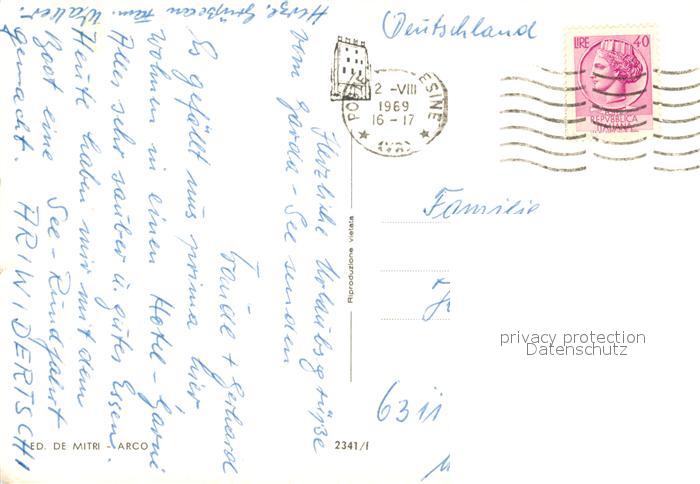 Deutschland
LIRE 40
REPVBBLICA
ITALIANA
2 -VIII
1969
16 - 17
ESINE
Familie
privacy protection
Datenschutz
6311
Riproduzione vietata
ED. DE MITRI - ARCO
2341/f
Herzliche Urlaubsgrüße
vom Garda-See senden
Traudl + Gerhard
Es gefällt uns prima hier
wohnen in einem Hotel-Garni
Alles sehr sauber u. gutes Essen.
Heute haben wir mit dem
Boot eine See-Rundfahrt
gemacht. ARIWIDERTSCHI
Herzl. Grüße an Fam. Walter.